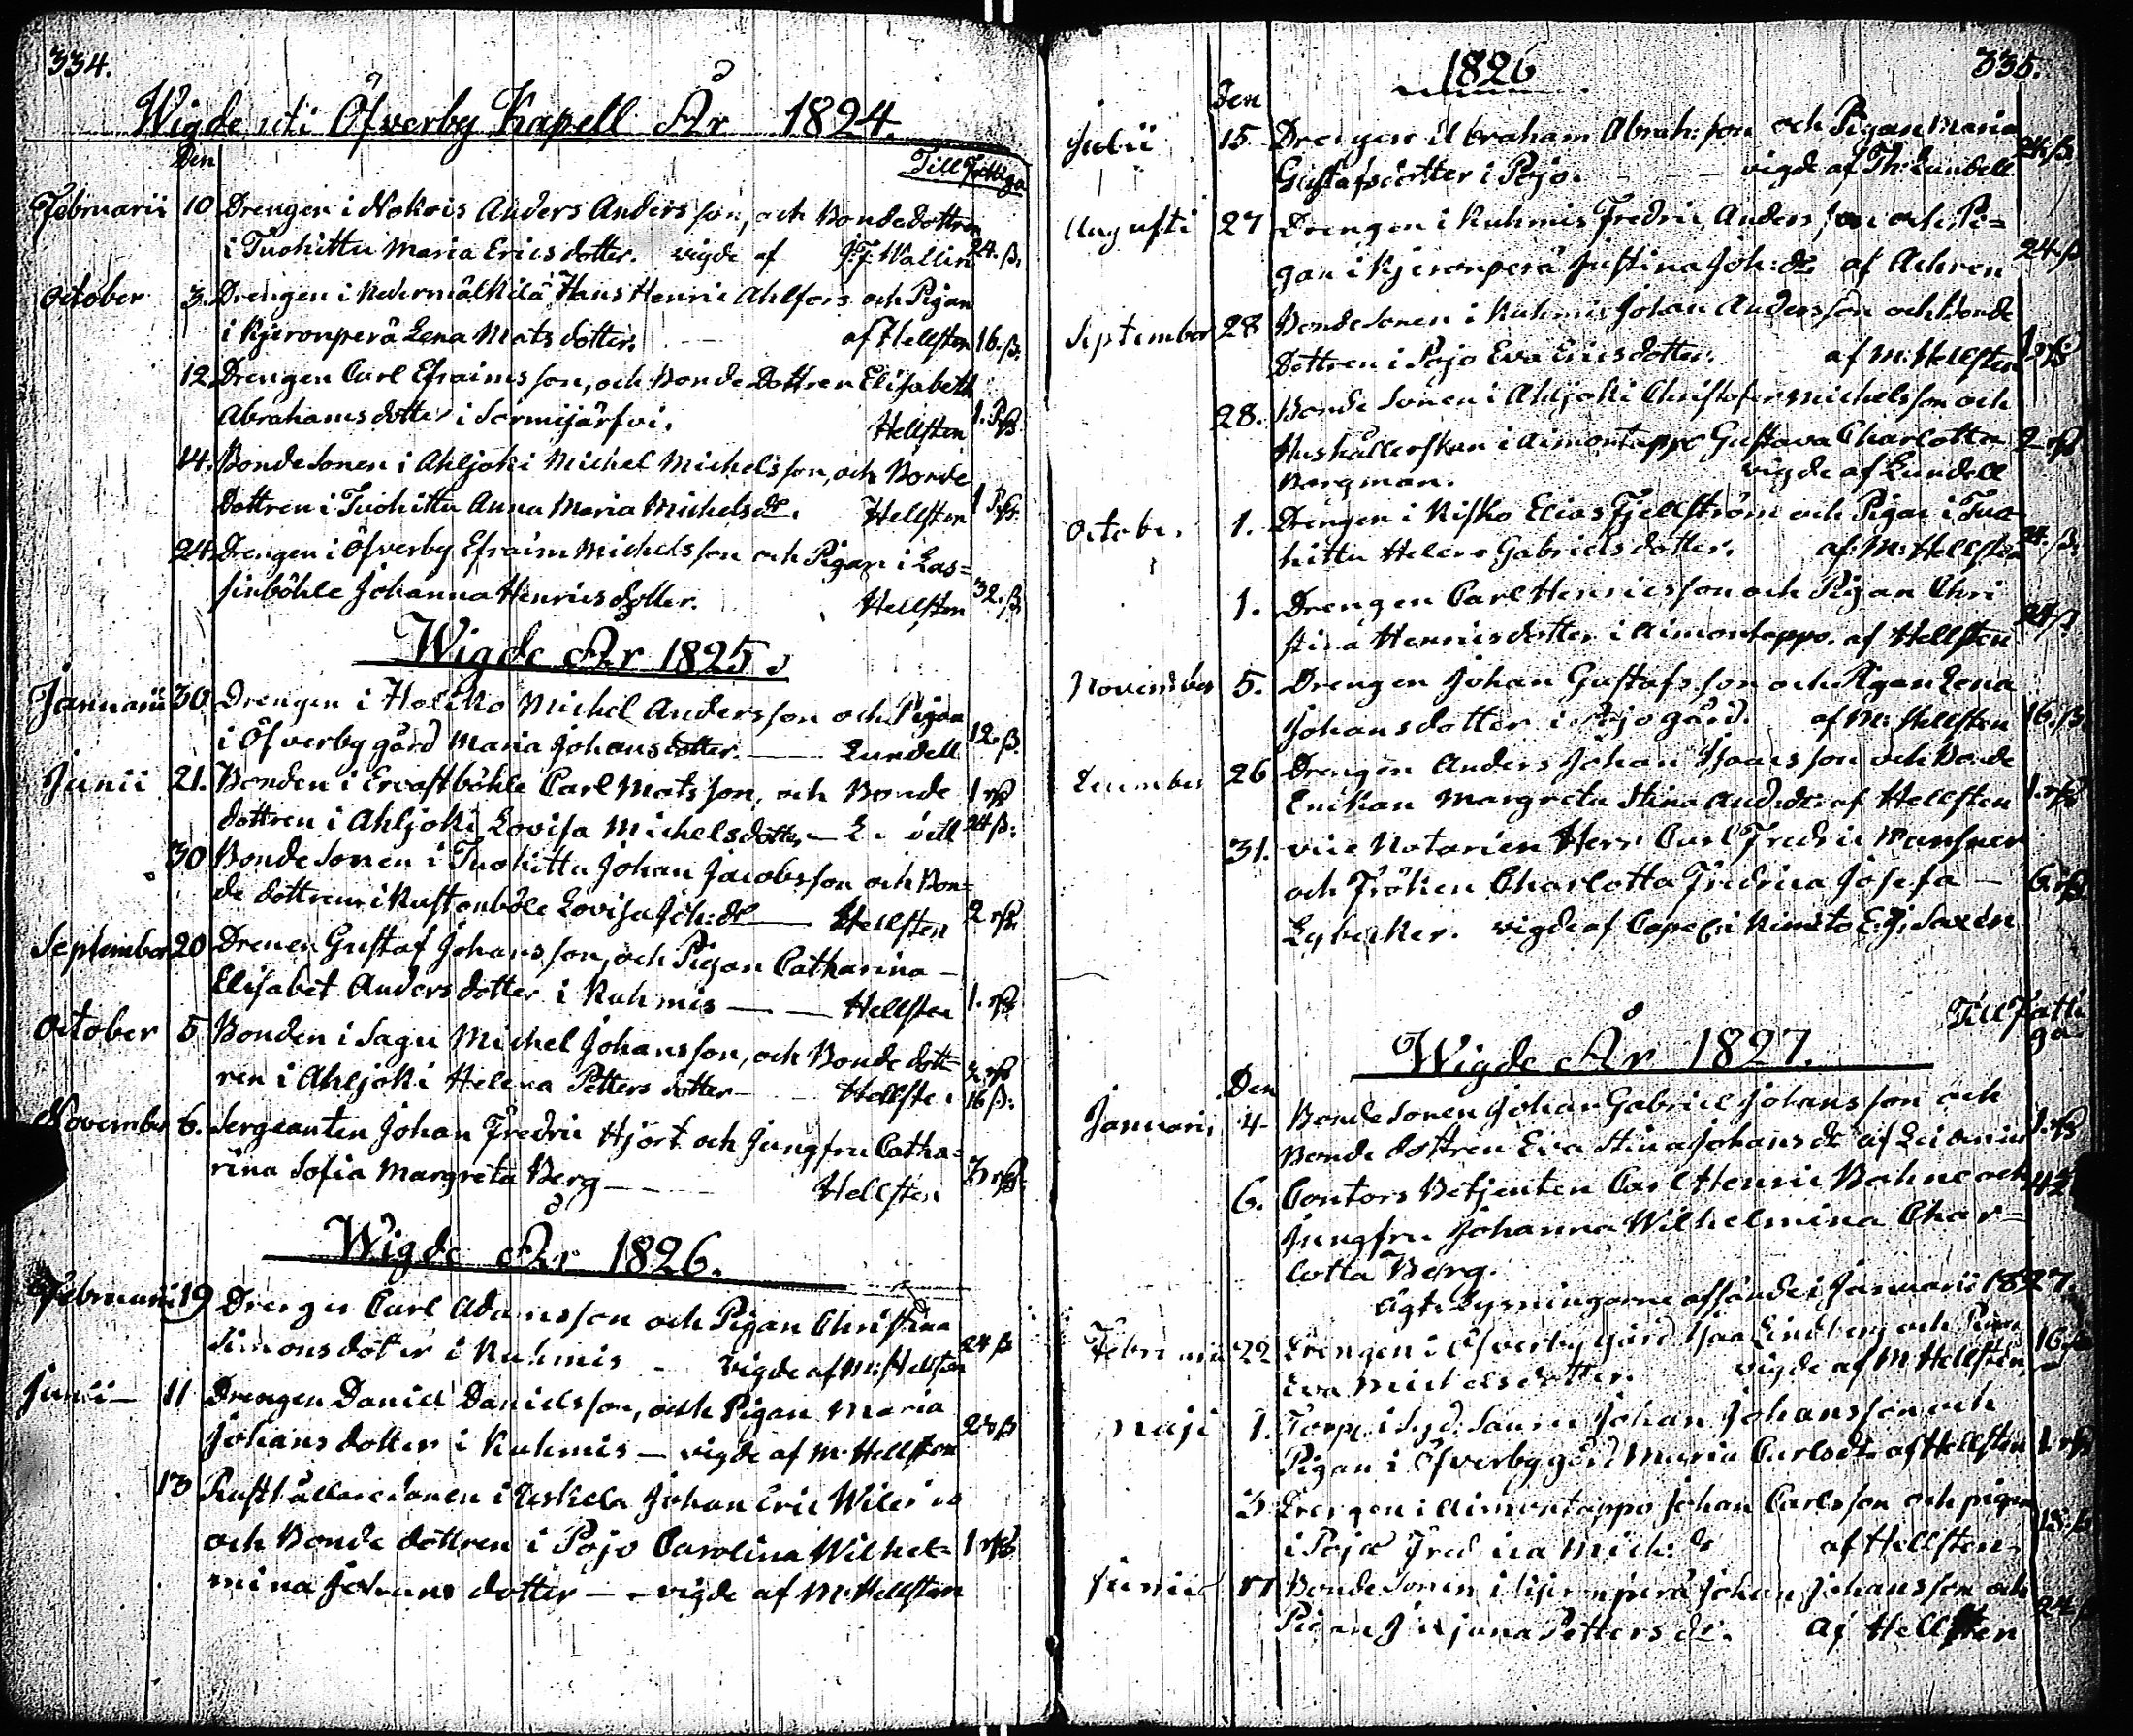 334.
Wigde uti Öfverby Kapell År 1824.
Den
Till Fattiga
Februarii 10 Drengen i Nokois Anders Andersson, och Bondedottren
i Tuohittu Maria Ericsdotter. vigde af J:F: Wallin 24. ß.
October 3. Drengen i Hans Henric Ahlfors och Pigan
i Kjeronperä Lena Matsdotter. af Hellsten 16. ß.
12. Drengen Carl Efraimsson, och Bonde Dottren Elisabeth
Abrahamsdotter i Sormijärfvi. Hellsten 1. Rß
14. Bonde Sonen i Ahljoki Michel Michelsson, och Bonde
dottren i Tuohittu Anna Maria Michelsdr. Hellsten 1 Rß
24. Drengen i Öfverby Efraim Michelsson och Pigan i Las=
sinböhle Johanna Henricsdotter. Hellsten 32. ß
Wigde År 1825.
Januarii 30 Drengen i Michel Andersson och Pigan
i Öfverby gård Maria Johansdotter. — Lundell 12. ß.
Junii 21. Bonden i Ervastböhle Carl Matsson, och Bonde 1 rß
dottren i Ahljoki Lovisa Michelsdotter — 24 ß.
30 Bonde Sonen i Tuohittu Johan Jacobsson och Bon=
de dottren i Rustonböle Lovisa Joh:dr — Hellsten 2 rß
September 20 Drenen Gustaf Johansson, och Pigan Catharina —
Elisabet Andersdotter i Kuhmis — — Hellsten 1. rß
October 5 Bonden i Sagu Michel Johansson, och Bonde dott= 2 rß
ren i Ahljoki Helena Pettersdotter — Hellsten 16 ß.
November 6. Sergeanten Johan Fredric Hjort och Jungfru Catha=
rina Sofia Margreta Berg — Hellsten 3 rß
Wigde År 1826.
Februarii 19 Drengen Carl Adamsson och Pigan Christina
Simonsdotter i Kuhmis — vigde af M: Hellsten 24 ß
Junii — 11 Drengen Daniel Danielsson, och Pigan Maria
Johansdotter i Kuhmis — vigde af M. Hellsten 24 ß
13 Rusthållare Sonen i Uskela Johan Eric
och Bonde dottren i Pojo Carolina Wilhel= 1 rß
mina Johansdotter — — vigde af M. Hellsten
1826
335.
Den
Julii 15 Drengen Abraham Abrah:son och Pigan Maria
Gustafsdotter i Pojo. — vigde af Th: Lundell 24. ß.
Augusti 27 Drengen i Kuhmis Fredric Andersson och Pi=
gan i Kjeronperä Justina Joh:dr. af Achren 24 ß
September 28 Bonde Sonen i Kuhmis Johan Andersson och Bonde
Dottren i Pojo Eva Ericsdotter. af M: Hellsten 1 rß
28. Bonde Sonen i Ahljoki Christofer Michelsson och
Hushållerskan i Aimontappo Gustava Charlotta 2 rß
Bergman. vigde af Lundell
October 1. Drengen i Risko Elias Fjellström och Pigan i Tuo
hittu Helena Gabrielsdotter. af: M: Hellsten 24. ß.
1. Drengen Carl Henricsson och Pigan Chri
stina Henricsdotter i Aimontappo. af Hellsten 24 ß
November 5. Drengen Johan Gustafsson och Pigan Lena
Johansdotter i Pojo gård. af M: Hellsten 16. ß.
December 26 Drengen Anders Johan Isaacsson och Bonde
Enikan Margreta Stina And:dr: af Hellsten 1. rß
31. vice Notarien Herr Carl Fredric
och Fröken Charlotta Fredrica Josefa — 6 rß
Lybecker. vigde af Capel: i Kimito E: J: Saxén
Till Fatti
ga
Wigde År 1827.
Den
Januarii 4 Bonde Sonen Johan Gabriel Johansson och
Bonde dottren Eva Stina Johansdr af 1. rß
6. Contors Betjenten Carl Henric Bohne och
Jungfru Johanna Wilhelmina Char=
lotta Berg.
Ägt: Lysningarne afsände i Januarii 1827.
Februarii 22 Drengen i Öfverby gård Isaac Lindberg och Pigan 16
Eva Michelsdotter. vigde af M Hellsten
Maji 1. Torp: i Johan Johansson och
Pigan i Öfverby gård Maria Carlsdr. af Hellsten 1. rß
3 Drengen i Aimontappo Johan Carlsson och pigan
i Pojo Fredrica Mich: dr af Hellsten
Junii Bonde Sonen i Kjeronperä Johan Johansson och
Pigan Pettersdr. af Hellsten 24 ß